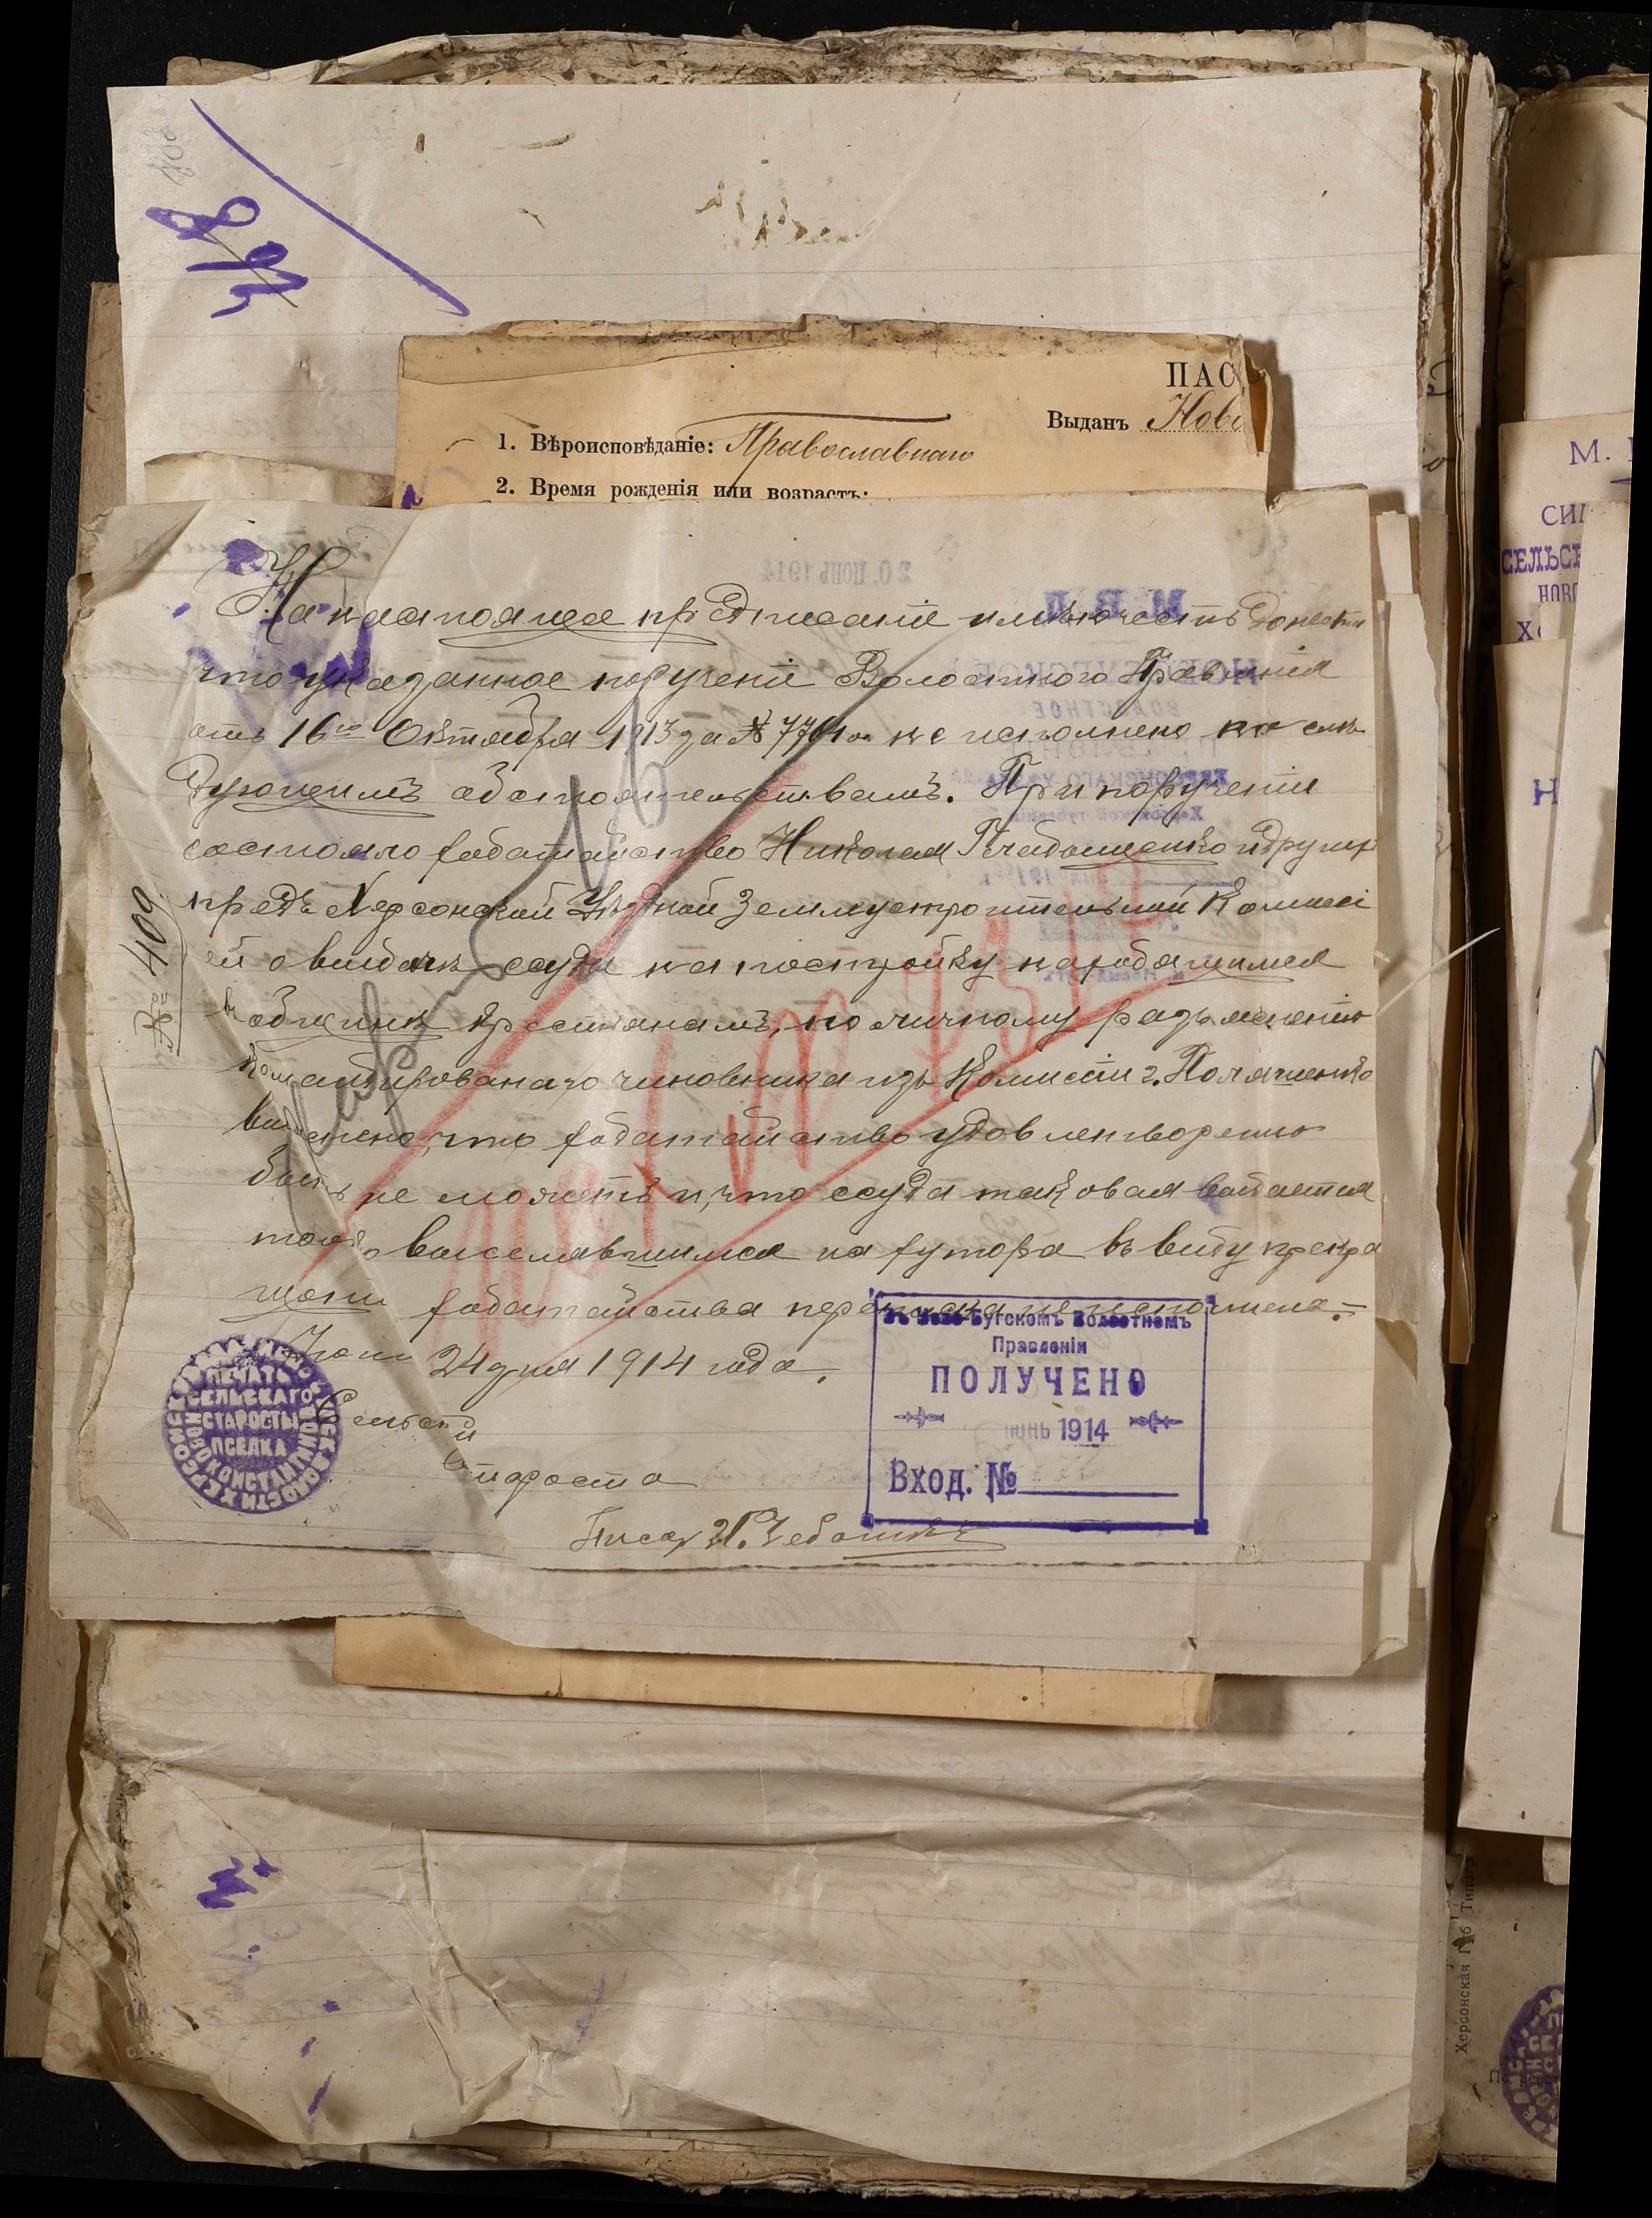 ПАС
Выданъ Ново
1. Вѣроисповѣданіе: Православнаго
2. Время рожденія или возрастъ:
На настоящее предписаніе имѣю честь донести
что указанное порученіе Волостного Правленія
отъ 16го Октября 1913 за № 7701 не исполнено по слѣ
дующимъ обстоятельствамъ. При порученіи
состояло ходатайство Николая и других
предъ Херсонской Уѣздной Землеустроительной Комисі
ей о выдачѣ ссуды на постройку находящимся
въ общинѣ крестьянамъ, по личному разъясненію
командированаго чиновника изъ Комисіи г.
выяснено, что ходатайство удовлетворено
быть не можетъ и, что ссуда таковая выдается
только выселявшимся на хутора въ виду прекра
щени ходатайства переписка не исполнена. —
Іюня 24 дня 1914 года.
Сельскій
Староста
Писар
№ 409
ПЕЧАТЬ
СЕЛЬСКАГО
СТАРОСТЫ
ПСЕЛКА
НОВОКОНСТАНТИНОВКИ
Въ Ново-Бугскомъ Волостномъ
Правленіи
ПОЛУЧЕНО
іюнь 1914
Вход. №
20. ІЮНЬ 1914
М. В. Д.
М.
СИ
СЕЛЬСК
НОВО
Х
Н
Херсонская Губ. Типо